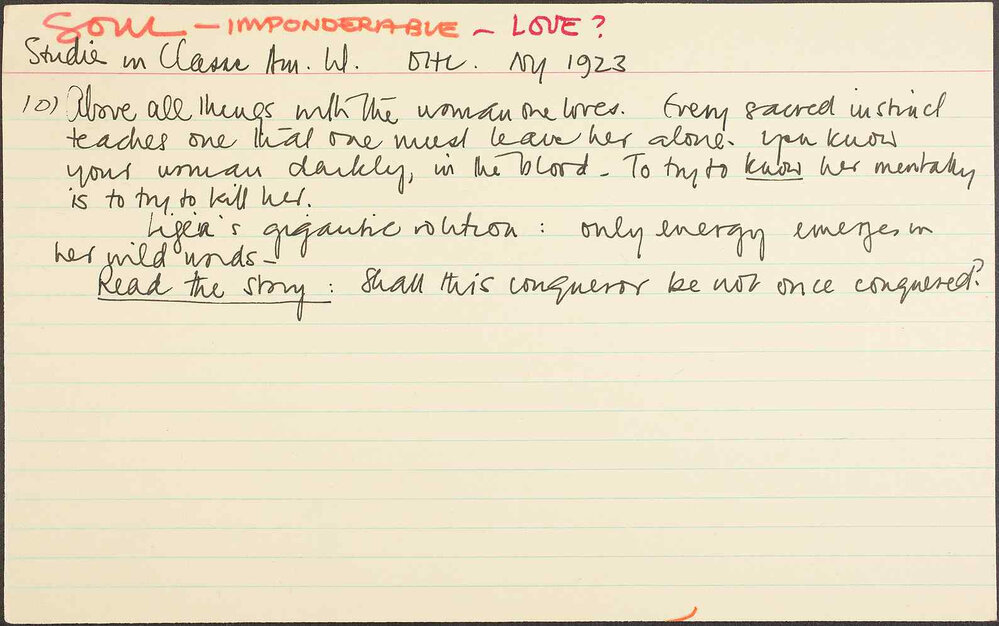 SOUL - IMPONDERABLE - LOVE?
Studies in Classc Am. Lit. DHL. NY 1923
10) Above all things with the woman one loves. Every sacred instinct
teaches one that one must leave her alone. You know
your woman darkly, in the blood - To try to know her mentally
is to try to kill her.
Ligeia's gigantic volition: only energy emerges in
her wild words -
Read the story: Shall this conqueror be not once conquered?